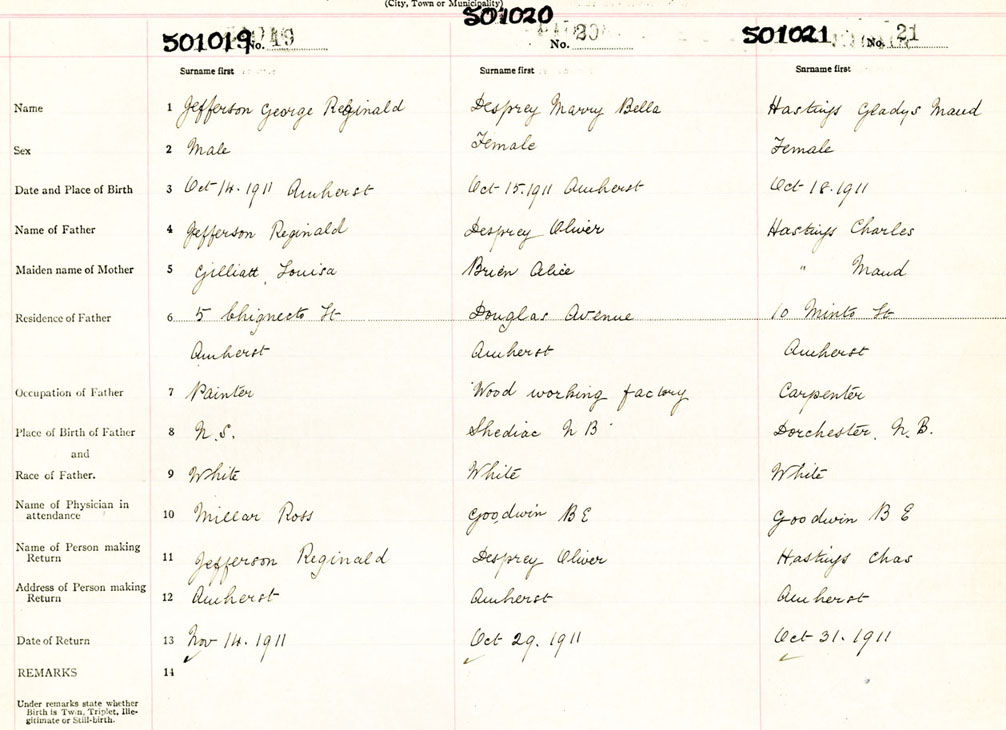 (City, Town or Municipality)
501019 No. 19 501020 No. 20 501021 No. 21
Surname first Surname first Surname first
Name 1 Jefferson George Reginald Desprey Marry Bella Hastings Gladys Maud
Sex 2 Male Female Female
Date and Place of Birth 3 Oct 14. 1911 Amherst Oct 15. 1911 Amherst Oct 18. 1911
Name of Father 4 Jefferson Reginald Desprey Oliver Hastings Charles
Maiden name of Mother 5 Gilliatt, Louisa Brien Alice " Maud
Residence of Father 6 5 Chignecto St Douglas Avenue 10 Minto St
Amherst Amherst Amherst
Occupation of Father 7 Painter Wood working factory Carpenter
Place of Birth of Father 8 N.S. Shediac N B Dorchester, N.B.
and
Race of Father. 9 White White White
Name of Physician in
attendance 10 Millar Ross Goodwin B E Goodwin B E
Name of Person making
Return 11 Jefferson Reginald Desprey Oliver Hastings Chas
Address of Person making
Return 12 Amherst Amherst Amherst
Date of Return 13 Nov 14. 1911 Oct 29. 1911 Oct 31. 1911
REMARKS 14
Under remarks state whether
Birth is Twin, Triplet, Ille-
gitimate or Still-birth.